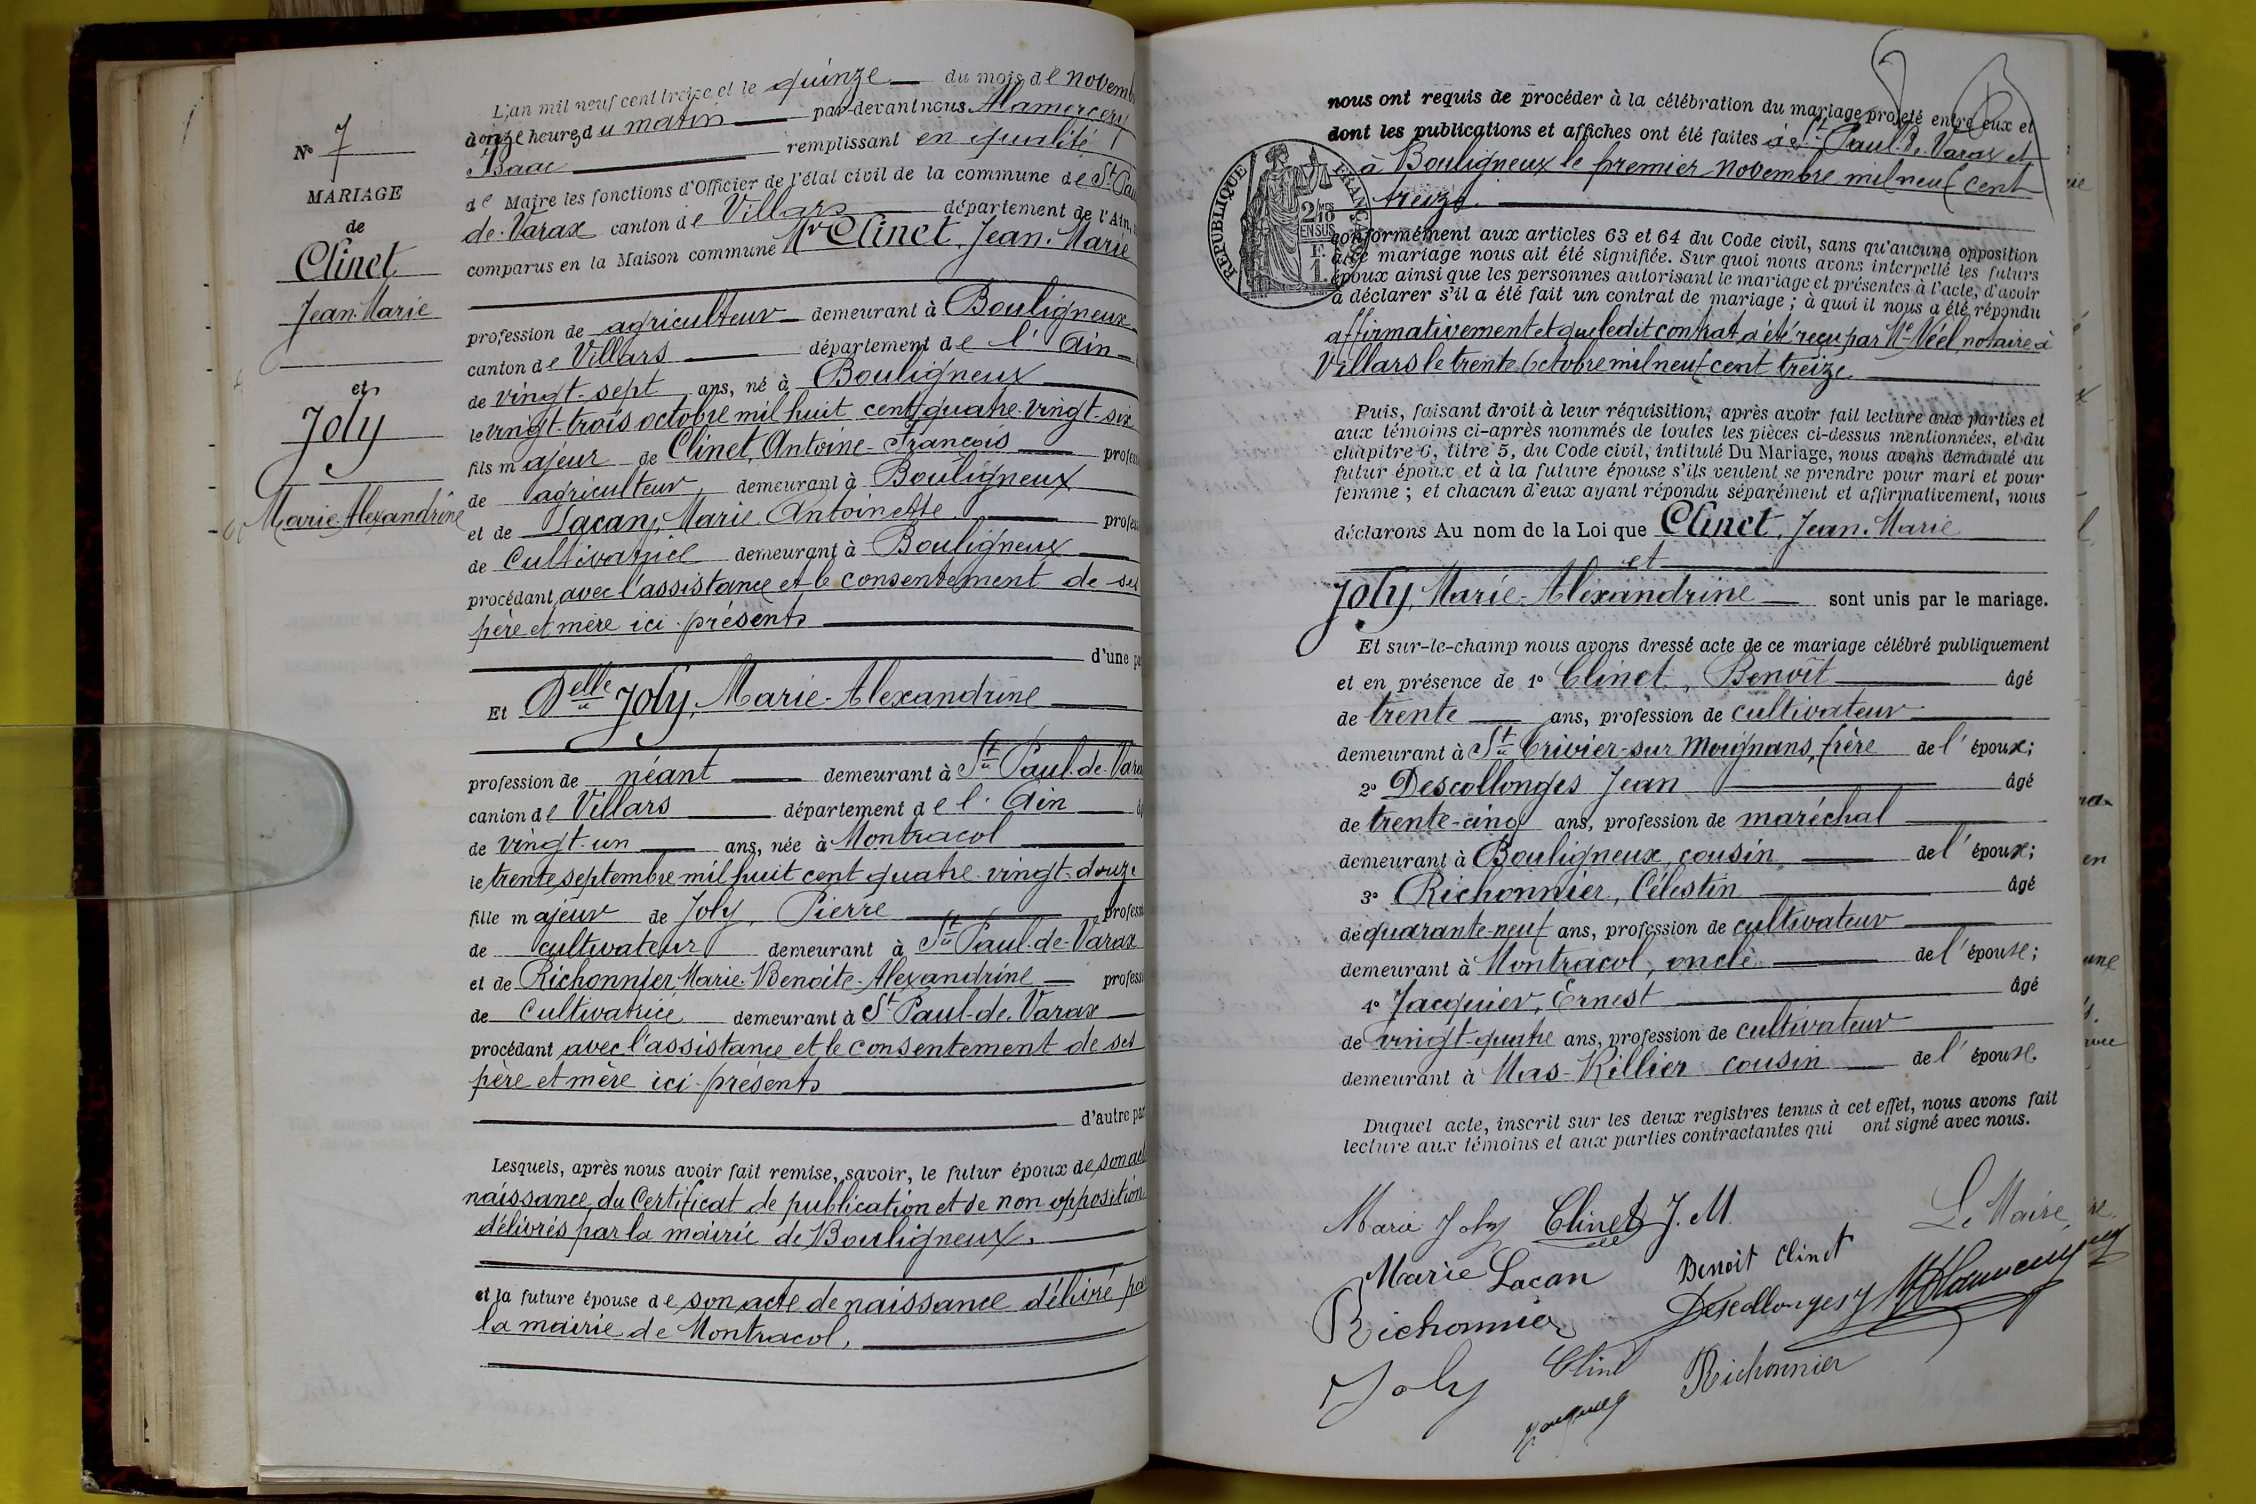 N° 7
MARIAGE
de
Clinet
Jean-Marie
et
Joly
Marie-Alexandrine
L'an mil neuf cent treize et le quinze du mois de novemb
à onze heures du matin par-devant nous Mamercery
Isaac remplissant en qualité
de Maire les fonctions d'Officier de l'état civil de la commune de St Pau
de-Varax canton de Villars département de l'Ain,
comparus en la Maison commune Mr Clinet, Jean-Marie
profession de agriculteur demeurant à Bouligneux
canton de Villars département de l'Ain
de vingt-sept ans, né à Bouligneux
le vingt-trois octobre mil huit cent quatre-vingt-six
fils majeur de Clinet, Antoine-François profess
de agriculteur, demeurant à Bouligneux
et de Lacan, Marie Antoinette profess
de Cultivatrice demeurant à Bouligneux
procédant avec l'assistance et le consentement de ses
père et mère ici présents
d'une pa
Et Delle Joly, Marie-Alexandrine
profession de néant demeurant à St Paul-de-Varax
canton de Villars département de l'Ain
de vingt-un ans, née à Montracol
le trente septembre mil huit cent quatre-vingt-douze
fille majeur de Joly, Pierre profess
de cultivateur demeurant à St Paul-de-Varax
et de Richonnier Marie-Benoite-Alexandrine profess
de Cultivatrice demeurant à St Paul-de-Varax
procédant avec l'assistance et le consentement de ses
père et mère ici présents
d'autre par
Lesquels, après nous avoir fait remise, savoir, le futur époux de son act
naissance, du Certificat de publication et de non opposition
délivrés par la mairie de Bouligneux.
et la future épouse de son acte de naissance délivré pa
la mairie de Montracol.
nous ont requis de procéder à la célébration du mariage projeté entre eux et
dont les publications et affiches ont été faites à St Paul-de-Varax et
à Bouligneux le premier novembre mil neuf cent
treize.
RÉPUBLIQUE FRANÇAISE
2/10 MES
EN SUS
F.
1.
conformément aux articles 63 et 64 du Code civil, sans qu'aucune opposition
à ce mariage nous ait été signifiée. Sur quoi nous avons interpellé les futurs
époux ainsi que les personnes autorisant le mariage et présentes à l'acte, d'avoir
à déclarer s'il a été fait un contrat de mariage ; à quoi il nous a été répondu
affirmativement et que ledit contrat a été reçu par Me Véel, notaire à
Villars le trente Octobre mil neuf cent treize.
Puis, faisant droit à leur réquisition, après avoir fait lecture aux parties et
aux témoins ci-après nommés de toutes les pièces ci-dessus mentionnées, et du
chapitre 6, titre 5, du Code civil, intitulé Du Mariage, nous avons demandé au
futur époux et à la future épouse s'ils veulent se prendre pour mari et pour
femme ; et chacun d'eux ayant répondu séparément et affirmativement, nous
déclarons Au nom de la Loi que Clinet, Jean-Marie
et
Joly, Marie-Alexandrine sont unis par le mariage.
Et sur-le-champ nous avons dressé acte de ce mariage célébré publiquement
et en présence de 1° Clinet, Benoît âgé
de trente ans, profession de cultivateur
demeurant à St Trivier-sur Moignans, frère de l'époux;
2° Descollonges Jean âgé
de trente-cinq ans, profession de maréchal
demeurant à Bouligneux, cousin de l'époux;
3° Richonnier, Célestin âgé
de quarante-neuf ans, profession de cultivateur
demeurant à Montracol, oncle de l'épouse;
4° Jacquier, Ernest âgé
de vingt-quatre ans, profession de cultivateur
demeurant à Mas-Rillier cousin de l'épouse.
Duquel acte, inscrit sur les deux registres tenus à cet effet, nous avons fait
lecture aux témoins et aux parties contractantes qui ont signé avec nous.
Marie Joly Clinet J. M. Le Maire,
Marie Lacan Benoit Clinet
Richonnier Descollonges J
Joly Clinet Richonnier